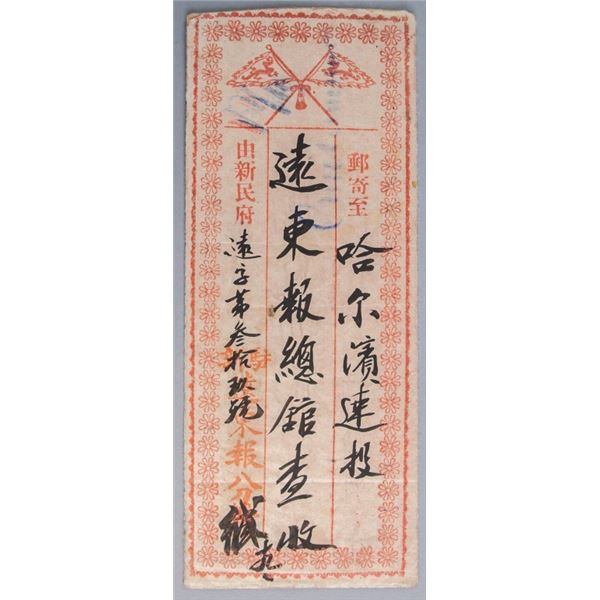 郵寄至哈尔濱速投
遠東報總館查收
由新民府
遠字第叁拾玖號
東報分
緘